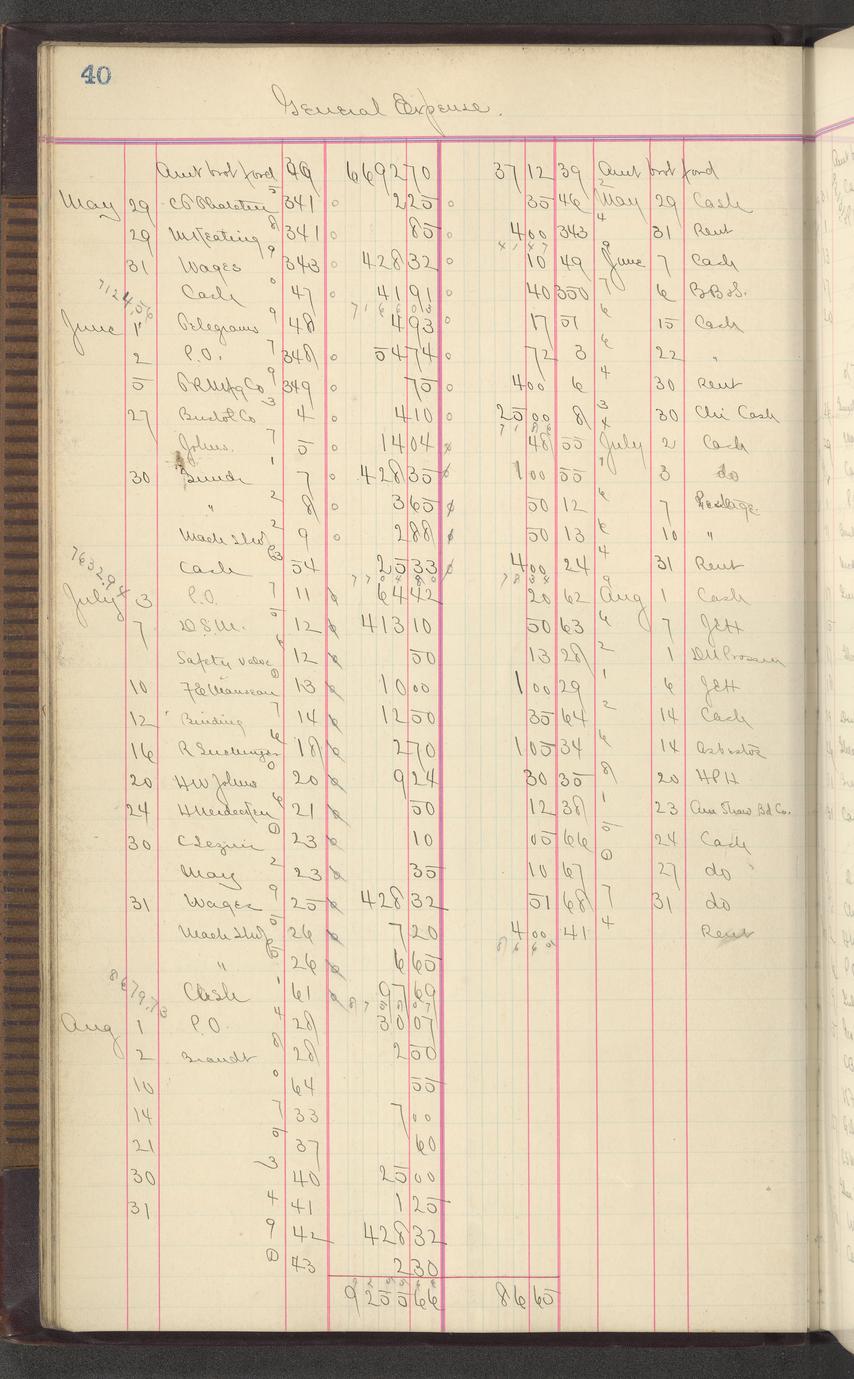 40
General Expense.
Amt brot ford 39 6692 70 37 12 39 Amt brot ford
May 29 341 2 25 35 46 May 29 Cash
29 McKeating 341 85 4 00 343 31 Rent
31 Wages 343 428 32 10 49 June 7 Cash
Cash 47 41 91 40 350 6 B.B.S.
7124.56
June 1 Telegrams 48 4 93 17 51 15 Cash
2 P.O. 348 54 74 72 3 22 "
5 P.R. Mfg Co 349 75 4 00 6 30 Rent
27 Bristol Co 4 4 10 25 00 8 30 Chi Cash
Johns. 5 14 04 48 55 July 2 Cash
30 7 428 35 1 00 55 3 do
" 8 3 65 50 12 7 Postage
Mach Shop 9 2 88 50 13 10 "
Cash 54 25 33 4 00 24 31 Rent
7632.94
July 3 P.O. 11 64 42 20 62 Aug 1 Cash
7 D.S.M. 12 413 10 50 63 7 JEH
Safety valve 12 50 13 28 1
10 13 10 00 1 00 29 6 JEH
12 Binding 14 12 50 35 64 14 Cash
16 18 2 70 1 05 34 14 Asbestos
20 H W Johns 20 9 24 30 35 20 HPH
24 21 50 12 38 23 Am Straw Bd Co.
30 23 10 05 66 24 Cash
May 23 35 10 67 27 do
31 Wages 25 428 32 51 68 31 do
Mach Shop 26 7 20 4 00 41 Rent
" 26 6 65
8679.73
Cash 61 97 69
Aug 1 P.O. 28 30 07
2 Brandt 28 2 50
10 64 55
14 33 7 00
21 37 60
30 40 25 00
31 41 1 25
42 428 32
43 2 30
9255 66 86 65